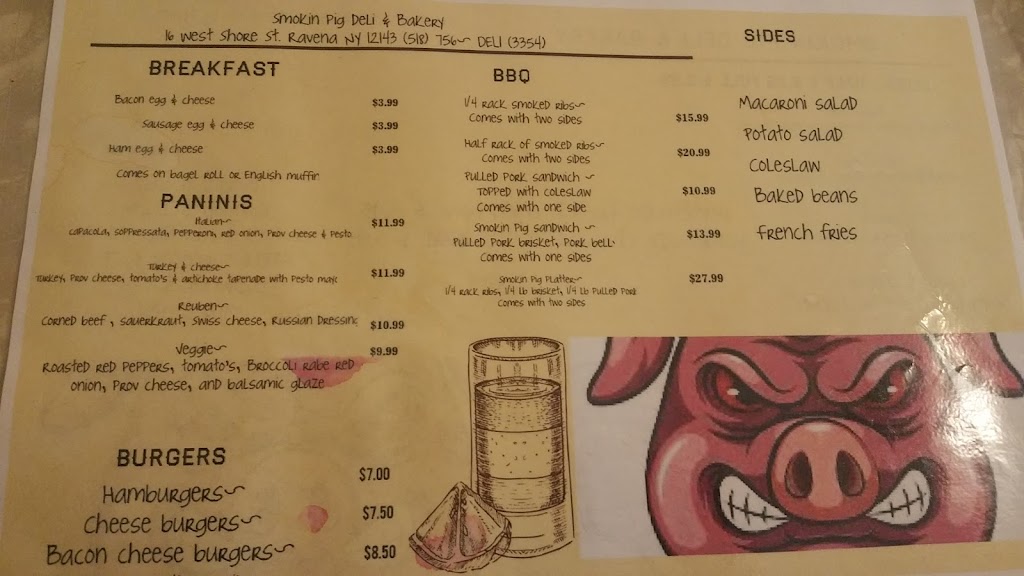 Smokin Pig Deli & Bakery
16 West Shore St. Ravena NY 12143 (518) 756~ DELI (3354)
BREAKFAST
Bacon egg & cheese $3.99
Sausage egg & cheese $3.99
Ham egg & cheese $3.99
Comes on bagel roll or English muffin
PANINIS
Italian~ $11.99
Capacola, soppressata, pepperoni, red onion, prov cheese & pesto
Turkey & cheese~ $11.99
Turkey, prov cheese, tomato's & artichoke tapenade with pesto mayo
Reuben~
Corned beef, sauerkraut, swiss cheese, Russian dressing $10.99
Veggie~ $9.99
Roasted red peppers, tomato's, Broccoli rabe red
onion, prov cheese, and balsamic glaze
BURGERS
Hamburgers~ $7.00
Cheese burgers~ $7.50
Bacon cheese burgers~ $8.50
BBQ
1/4 rack smoked ribs~
Comes with two sides $15.99
Half rack of smoked ribs~
Comes with two sides $20.99
Pulled pork sandwich ~
Topped with coleslaw $10.99
Comes with one side
Smokin Pig sandwich ~ $13.99
Pulled pork brisket, pork bell
Comes with one sides
Smokin Pig Platter~ $27.99
1/4 rack ribs, 1/4 lb brisket, 1/4 lb pulled pork
Comes with two sides
SIDES
Macaroni salad
Potato salad
Coleslaw
Baked beans
French fries